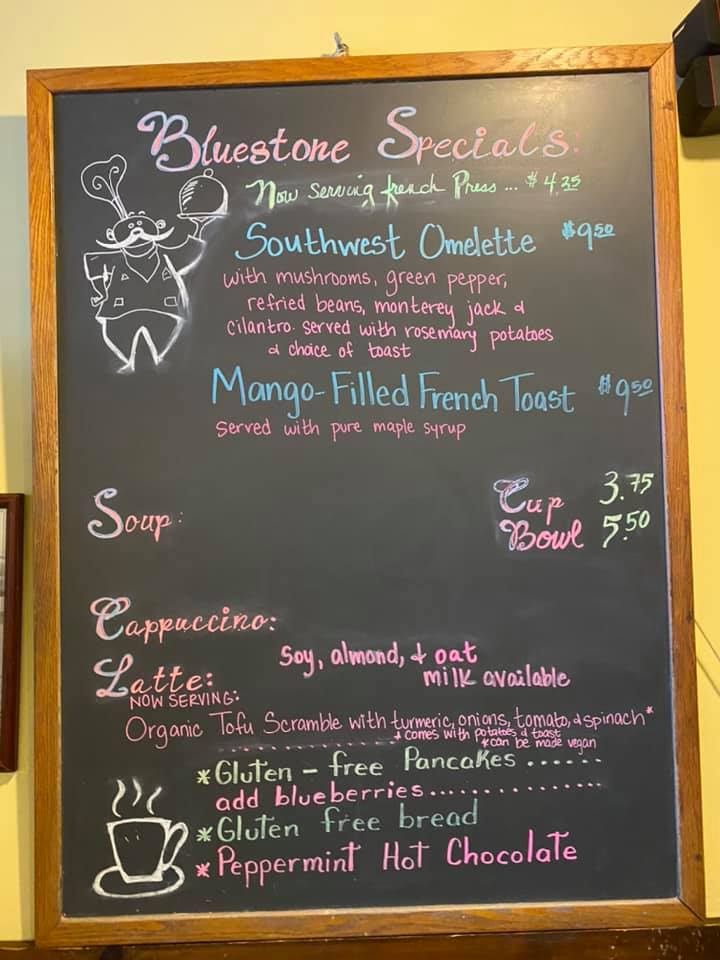 Bluestone Specials:
Now serving french Press ... $4.25
Southwest Omelette $9.50
with mushrooms, green pepper,
refried beans, monterey jack &
cilantro. served with rosemary potatoes
& choice of toast
Mango-Filled French Toast $9.50
Served with pure maple syrup
Soup: Cup 3.75
Bowl 5.50
Cappuccino:
Latte: Soy, almond, & oat
milk available
NOW SERVING:
Organic Tofu Scramble with turmeric, onions, tomato, & spinach*
* comes with potatoes & toast
*can be made vegan
*Gluten-free Pancakes ......
add blueberries..............
*Gluten free bread
*Peppermint Hot Chocolate